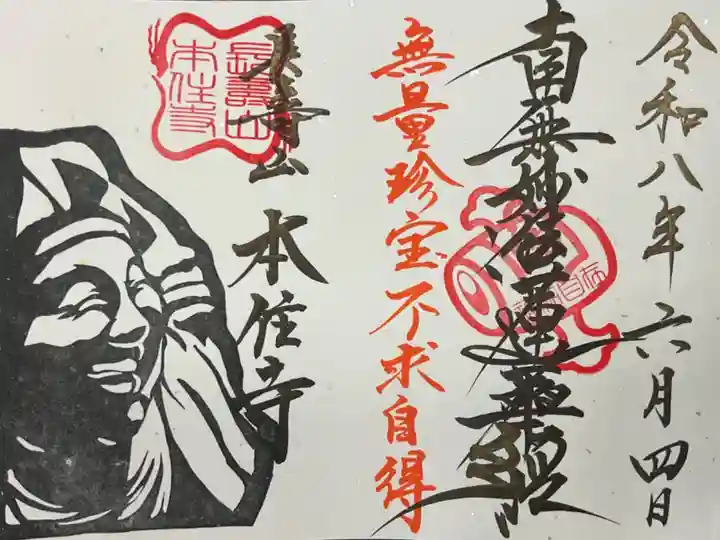 令和八年六月四日
南無妙法蓮華経
無量珍宝不求自得
長壽山
本住寺
長壽山
本住寺